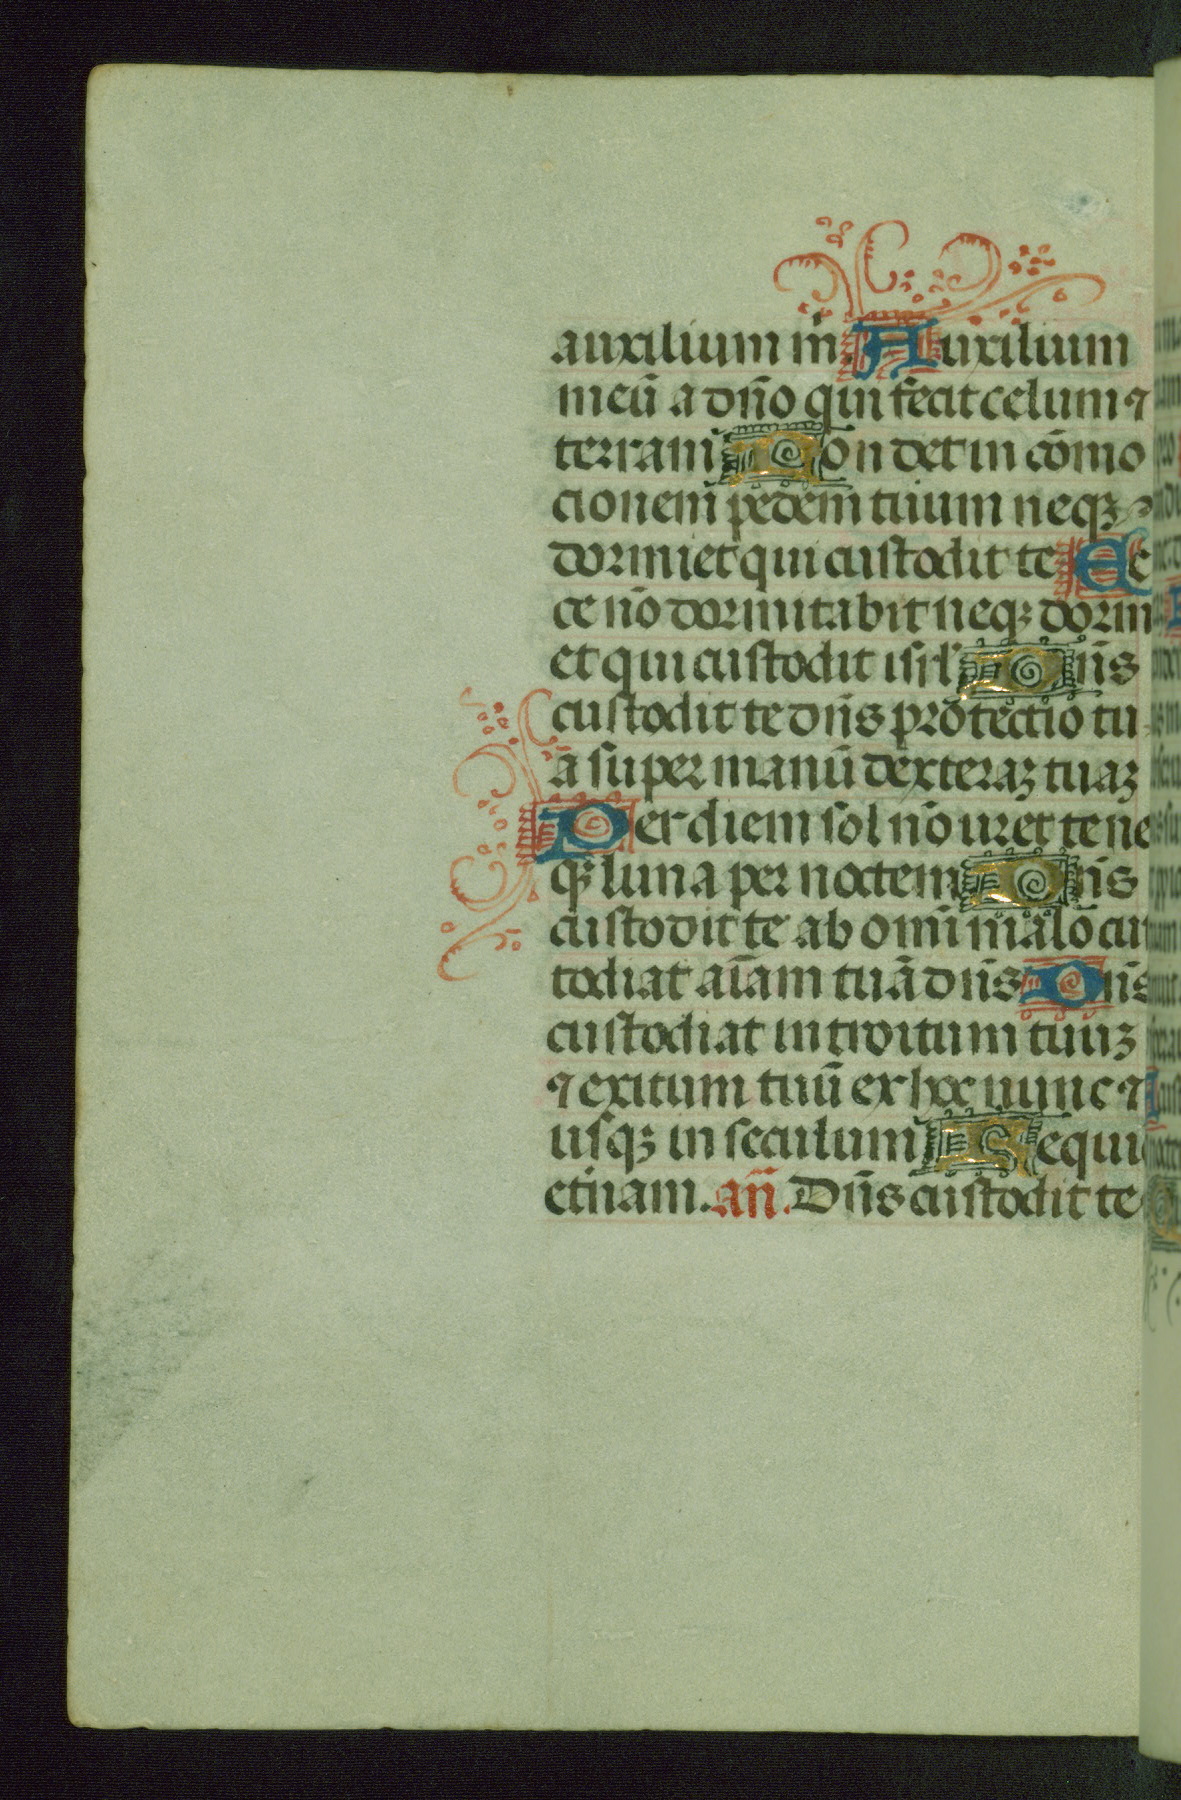 auxilium m̃. Auxilium
meũ a dño qui fecit celum ⁊
terram Non det in cõmo
cionem pedem tuum neqꝫ
dormiet qui custodit te Ec
ce nõ dormitabit neqꝫ dorm
et qui custodit isrl̃ Dñs
custodit te dñs protectio tu
ã super manũ dexteraꝫ tuaꝫ
Per diem sol nõ uret te ne
qꝫ luna per noctem Dñs
custodit te ab omĩ malo cus
todiat aĩam tuã dñs Dñs
custodiat introitum tuuꝫ
⁊ exitum tuũ ex hoc nunc ⁊
usqꝫ in seculum Requi
etnam. añ. Dñs custodit te